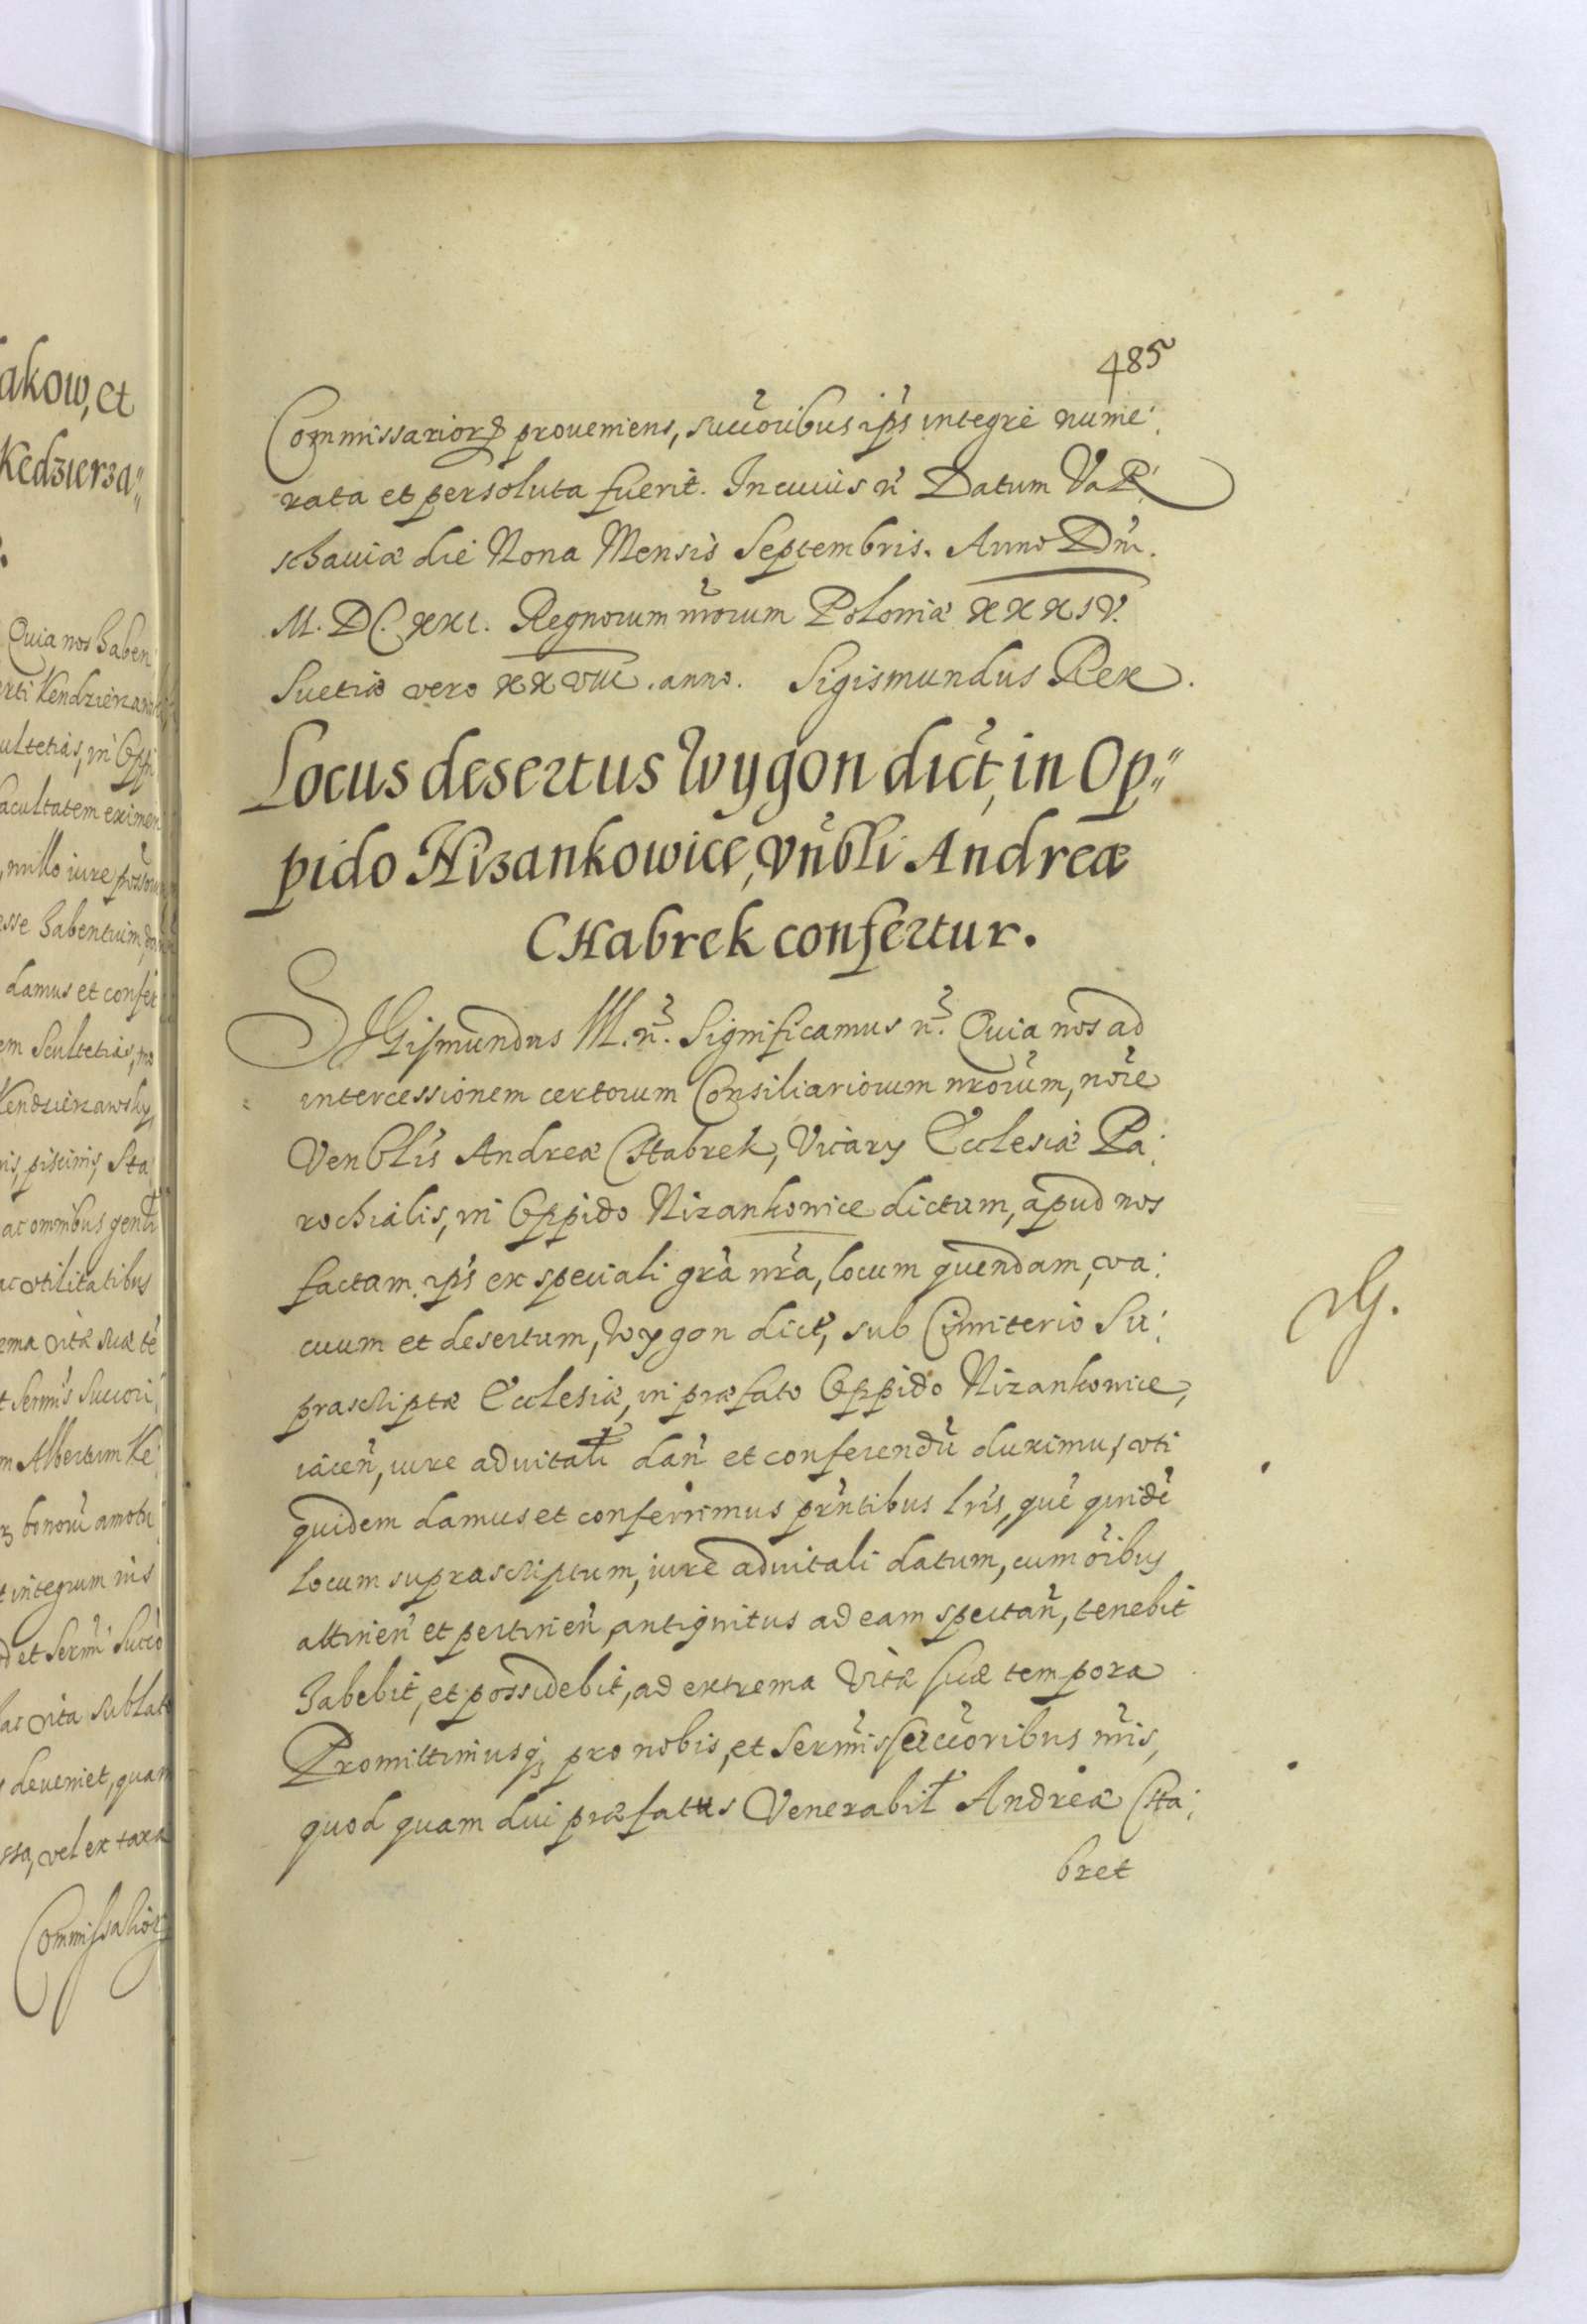 akow, et
Kedzierza„
Quia nos haben
erti Kendzierza
ultetiæ, in Opp
acultatem eximen
, nullo iure
esse habentium
damus et confer
em Scultetiæ,
Kendzierzawsky,
ris, piscinis, Sta
ac omnibus
ac vtilitatibus
ema vitæ suæ te
t Sermis Succori
m Albertum Ke
bonorũ amotu
t integrum ius
et Sermi Succo
hac vita sublat
deueniet, quam
ssa, vel ex taxa
Commissarior
485
Commissarior proueniens, succoribus ips integrè nume:
rata et persoluta fuerit. In cuius rẽ Datum Var:
schauiæ die Nona Mensis Septembris. Anno Dni.
M. DC. XXI. Regnorum nrorum Poloniæ XXXIV.
Suetiæ vero XXVIII. anno. Sigismundus Rex.
Locus desertus Wygon dict, in Op„
pido Nizankowice, Vnbli Andreæ
CHabrek confertur.
SIGismundus III. rẽ. Significamus rẽ. Quia nos ad
intercessionem certorum Consiliariorum nrorum, noie
Venblis Andreæ CHabrek, Vicary Ecclesiæ Pa:
rochialis, in Oppido Nizankowice dictum, apud nos
factam, ips ex speciali gra nra, locum quendam, va:
cuum et desertum, Wygon dict, sub Cimiterio Su:
prascriptæ Ecclesiæ, in præfato Oppido Nizankowice,
iacen, iure aduitali dan et conferendũ duximus, vti
quidem damus et conferimus prntibus lris, quẽ quidẽ
locum suprascriptum, iure aduitali datum, cum oibus
attinen et pertinen, antiquitus ad eam spectan, tenebit
habebit, et possidebit, ad extrema vitæ suæ tempora
Promittimusq; pro nobis, et Sermis succoribus nris,
quod quam diu præfatus Venerabil Andreæ CHa:
bret